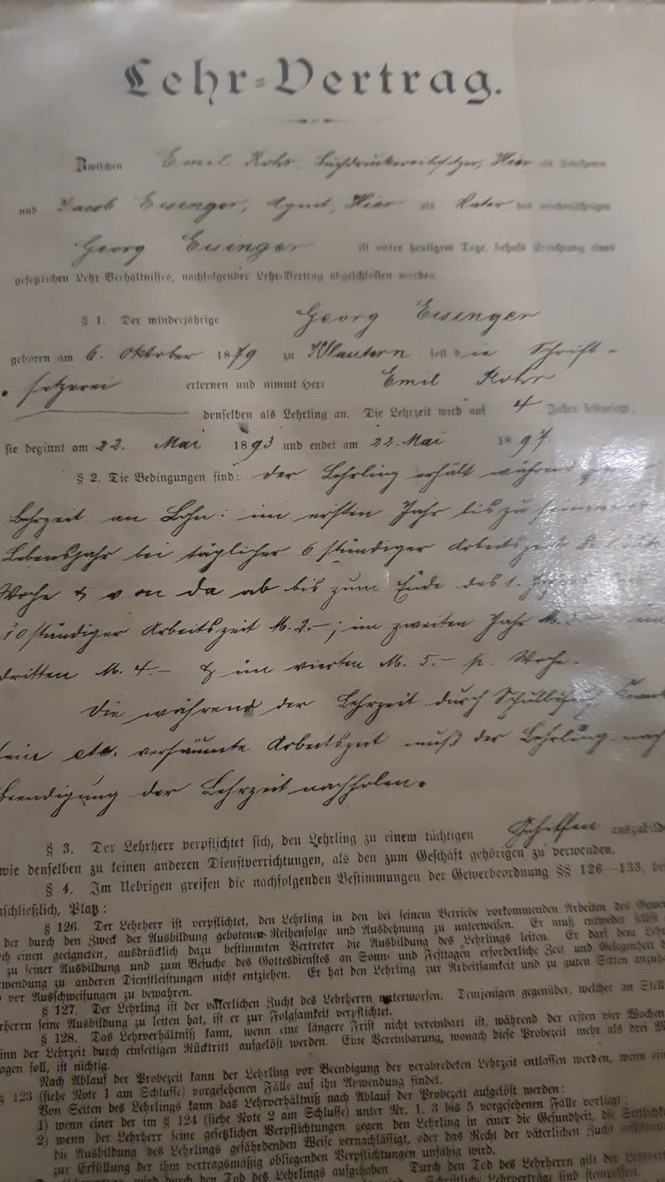 Lehr-Vertrag.
Zwischen Emil Rohr, Buchdruckereibesitzer, Hier als Lehrherrn
und Jacob Eisinger, Agent, Hier als Vater des minderjährigen
Georg Eisinger ist unter heutigem Tage, behufs Errichtung eines
gesetzlichen Lehr Verhältnisses, nachfolgender Lehr-Vertrag abgeschlossen worden.
§ 1. Der minderjährige Georg Eisinger
geboren am 6. Oktober 1879 zu Klautern soll die Schrift-
setzerei erlernen und nimmt Herr Emil Rohr
denselben als Lehrling an. Die Lehrzeit wird auf 4 Jahre festgesetzt;
sie beginnt am 22. Mai 1893 und endet am 22. Mai 1897.
§ 2. Die Bedingungen sind: Der Lehrling erhält während
Lehrzeit an Lohn: im ersten Jahr bis zu
Lebensjahr bei täglicher 6 stündiger Arbeitszeit
Woche & von da ab bis zum Ende des 1.
10 stündiger Arbeitszeit M. 2.–; im zweiten Jahr M. im
dritten M. 4.– & im vierten M. 5.– p. Woche.
Die während der Lehrzeit durch
etc. versäumte Arbeitszeit muß der Lehrling nach
Beendigung der Lehrzeit nachholen.
§ 3. Der Lehrherr verpflichtet sich, den Lehrling zu einem tüchtigen Gehilfen auszubild
wie denselben zu keinen anderen Dienstverrichtungen, als den zum Geschäft gehörigen zu verwenden.
§ 4. Im Uebrigen greifen die nachfolgenden Bestimmungen der Gewerbeordnung §§ 126–133,
nschließlich, Platz:
§ 126. Der Lehrherr ist verpflichtet, den Lehrling in den bei seinem Betriebe vorkommenden Arbeiten des Gewer
der durch den Zweck der Ausbildung gebotenen Reihenfolge und Ausdehnung zu unterweisen. Er muß entweder selbst
ch einen geeigneten, ausdrücklich dazu bestimmten Vertreter die Ausbildung des Lehrlings leiten. Er darf dem Lehr
zu seiner Ausbildung und zum Besuche des Gottesdienstes an Sonn- und Festtagen erforderliche Zeit und Gelegenheit d
wendung zu anderen Dienstleistungen nicht entziehen. Er hat den Lehrling zur Arbeitsamkeit und zu guten Sitten anzuha
vor Ausschweifungen zu bewahren.
§ 127. Der Lehrling ist der väterlichen Zucht des Lehrherrn unterworfen. Demjenigen gegenüber, welcher an Stell
rherrn seine Ausbildung zu leiten hat, ist er zur Folgsamkeit verpflichtet.
§ 128. Das Lehrverhältniß kann, wenn eine längere Frist nicht vereinbart ist, während der ersten vier Wochen
inn der Lehrzeit durch einseitigen Rücktritt aufgelöst werden. Eine Vereinbarung, wonach diese Probezeit mehr als drei M
agen soll, ist nichtig.
Nach Ablauf der Probezeit kann der Lehrling vor Beendigung der verabredeten Lehrzeit entlassen werden, wenn ein
§ 123 (siehe Note 1 am Schlusse) vorgesehenen Fälle auf ihn Anwendung findet.
Von Seiten des Lehrlings kann das Lehrverhältniß nach Ablauf der Probezeit aufgelöst werden:
1) wenn einer der im § 124 (siehe Note 2 am Schlusse) unter Nr. 1, 3 bis 5 vorgesehenen Fälle vorliegt;
2) wenn der Lehrherr seine gesetzlichen Verpflichtungen gegen den Lehrling in einer die Gesundheit, die Sittlichk
die Ausbildung des Lehrlings gefährdenden Weise vernachlässigt, oder das Recht der väterlichen Zucht
zur Erfüllung der ihm vertragsmäßig obliegenden Verpflichtungen unfähig wird.
wird durch den Tod des Lehrlings aufgehoben. Durch den Tod des Lehrherrn gilt der
Schriftliche Lehrverträge sind